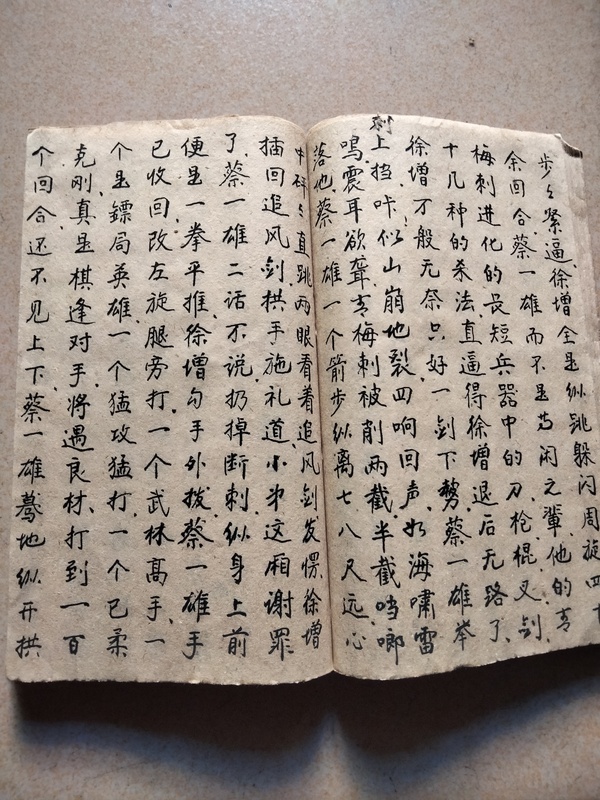 步々紧逼,徐增全是纵跳躲闪周旋四十
余回合,蔡一雄而不是等闲之辈,他的青
梅刺进化的長短兵器中的刀枪棍叉剑,
十几种的杀法,直逼得徐增退后无路了,
徐增万般无奈只好一剑下劈,蔡一雄举
刺上挡,咔似山崩地裂四响回声,如海啸雷
鸣震耳欲聋,青梅刺被削两截,半截噹啷
落地,蔡一雄一个箭步纵离七八尺远,心
中砰々直跳,两眼看着追风剑发愣,徐增
插回追风剑,拱手施礼道小弟这厢谢罪
了,蔡一雄二话不说,扔掉断刺,纵身上前
便是一拳平推,徐增勾手外拨,蔡一雄手
已收回改左旋腿旁打,一个武林高手,一
个是镖局英雄,一个猛攻猛打,一个已柔
克刚,真是棋逢对手,将遇良材,打到一百
个回合还不见上下,蔡一雄蓦地纵开拱